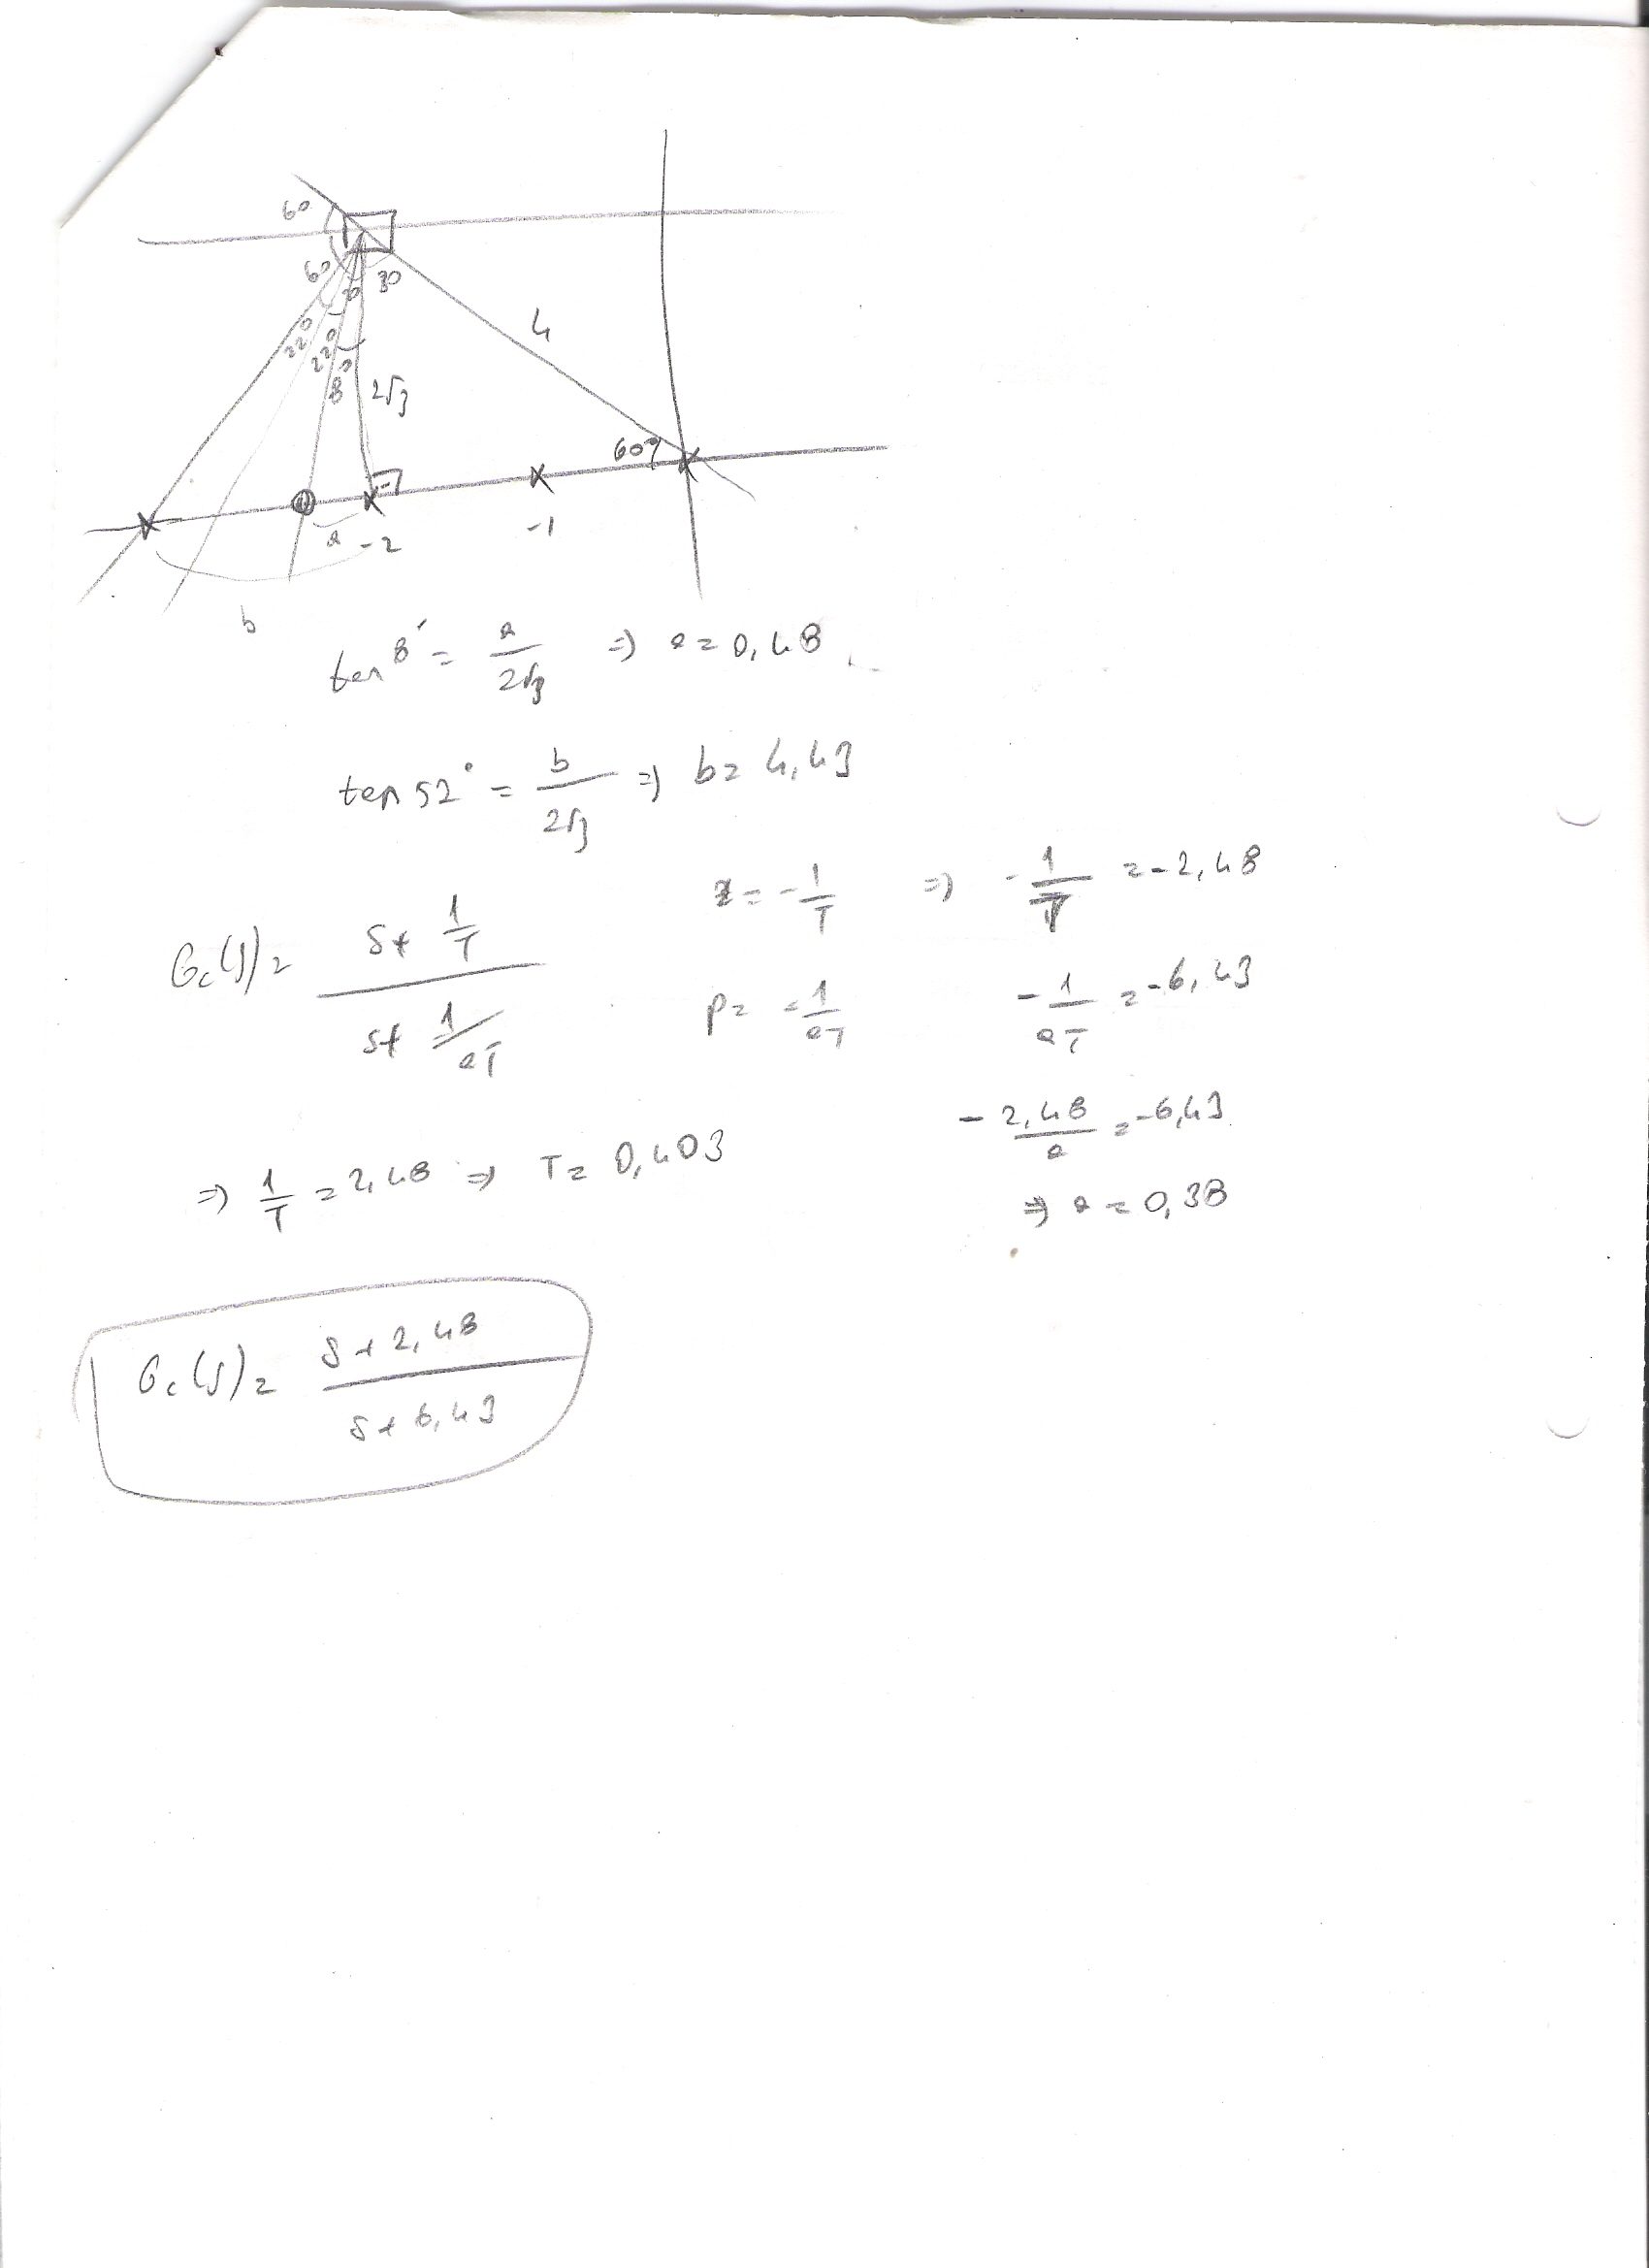 60
60 30 30
4
22° 22° 8°
2√3
60°
a -2 -1
b
tan 8° = a / 2√3 => a = 0,48
tan 52° = b / 2√3 => b = 4,43
Gc(s) = (s + 1/T) / (s + 1/aT)
z = -1/T => -1/T = -2,48
p = -1/aT -1/aT = -6,43
-2,48/a = -6,43
=> 1/T = 2,48 => T = 0,403
=> a = 0,38
Gc(s) = (s + 2,48) / (s + 6,43)